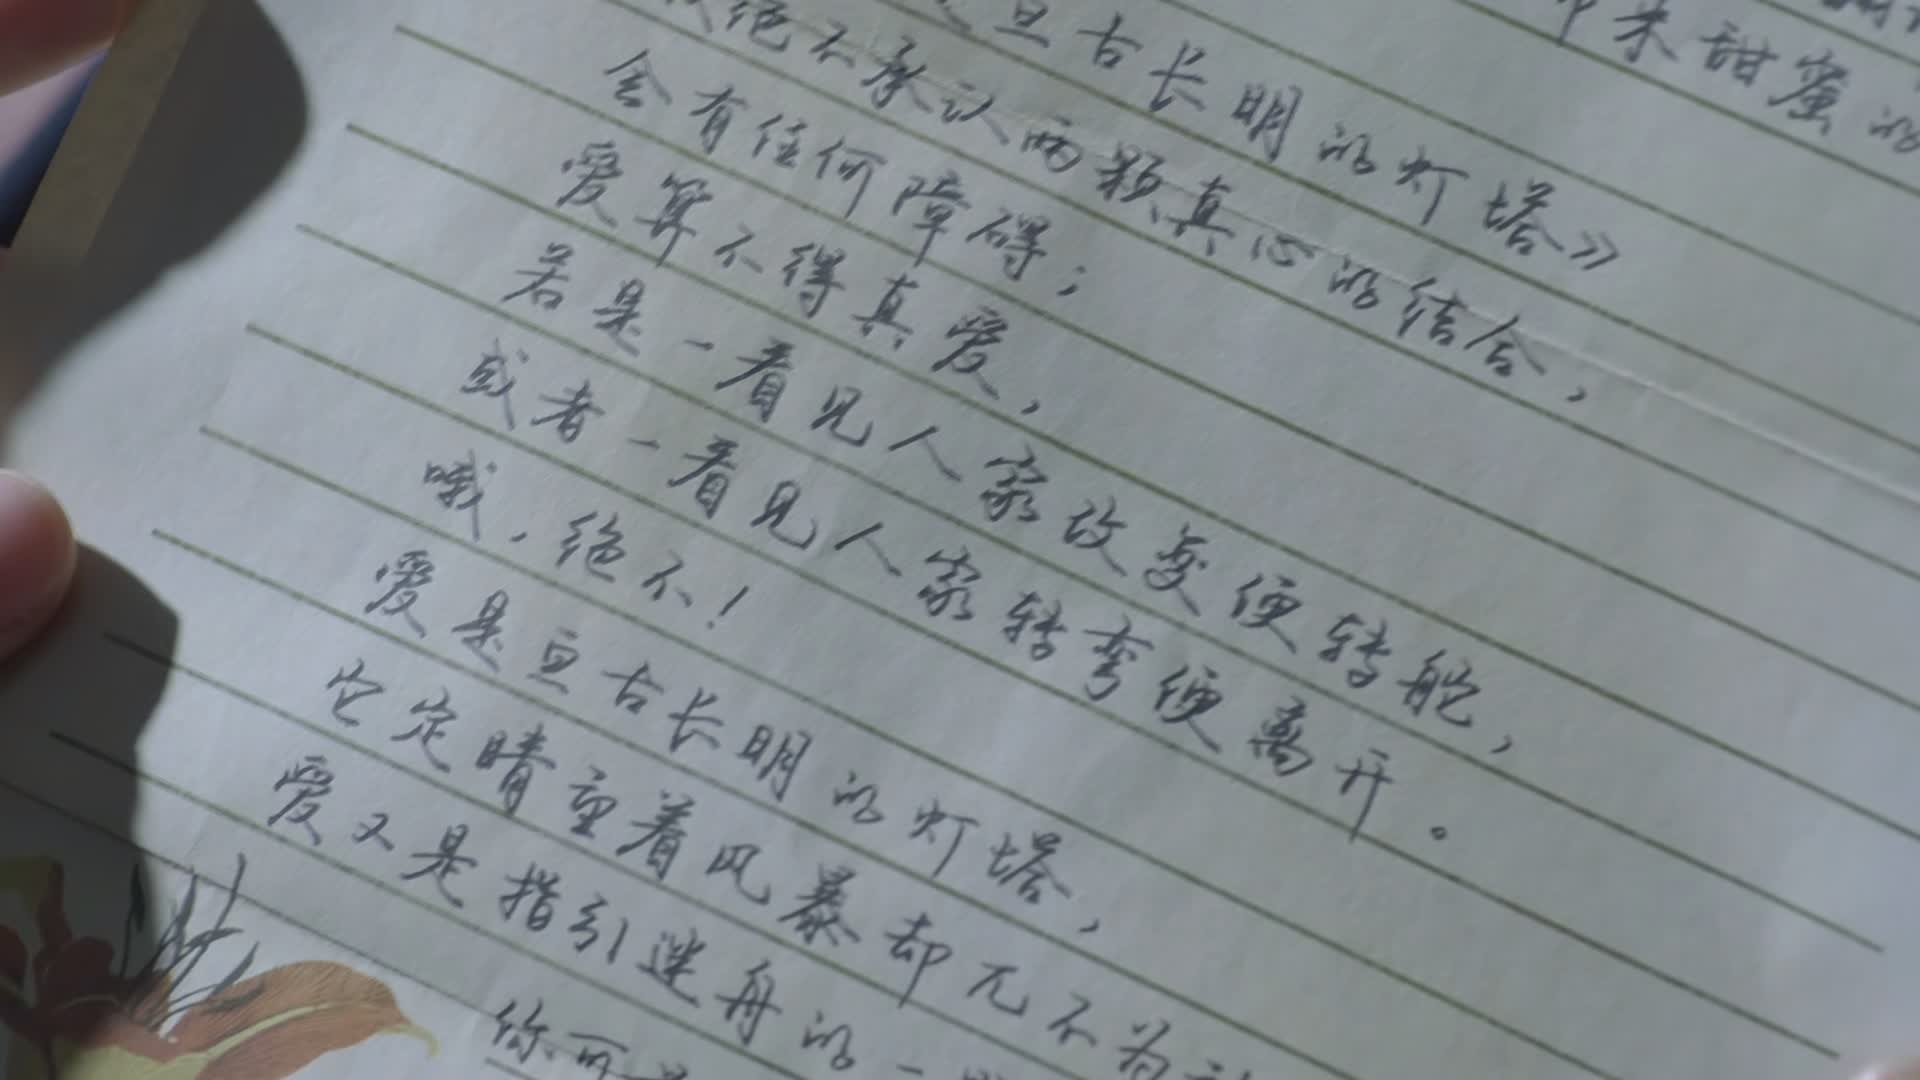 来甜蜜的
亘古长明的灯塔》
绝不承认两颗真心的结合，
会有任何障碍；
爱算不得真爱，
若是一看见人家改变便转舵，
或者一看见人家转弯便离开。
哦，绝不！
爱是亘古长明的灯塔，
它定晴望着风暴却兀不为
爱又是指引迷舟的一
你